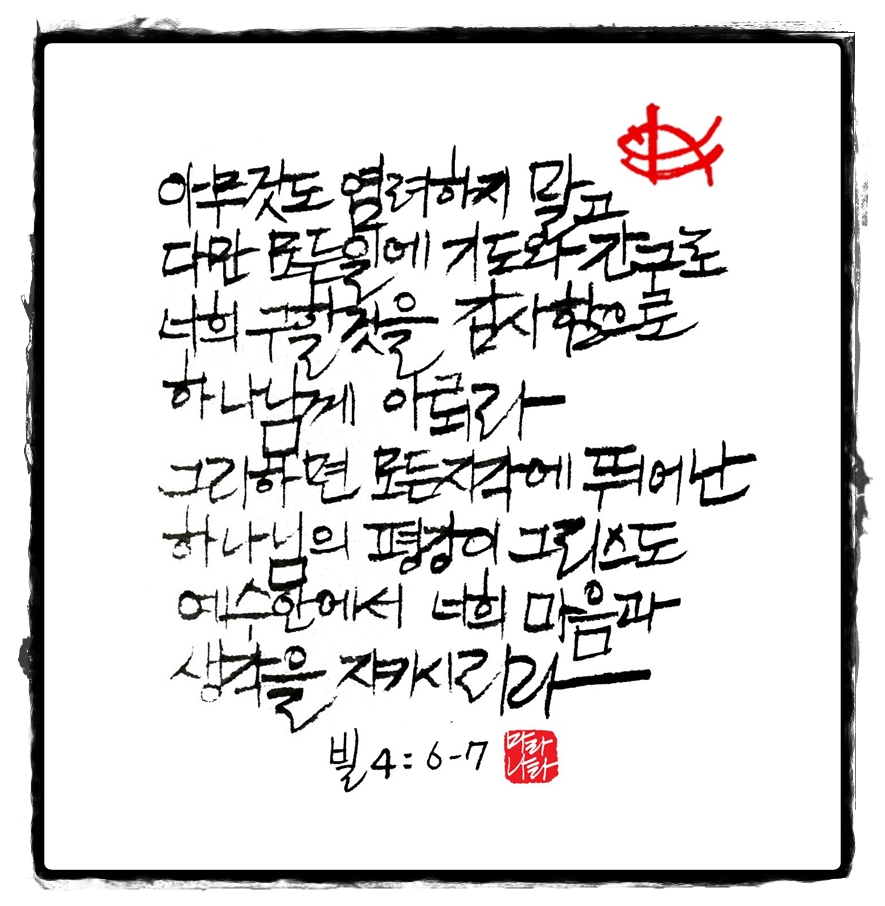 아무것도 염려하지 말고
다만 모두일에 기도와 간구로
너희 구할것을 감사함으로
하나님께 아뢰라
그리하면 모든지각에 뛰어난
하나님의 평강이 그리스도
예수안에서 너희 마음과
생각을 지키시리라
빌 4:6-7
마라
나타